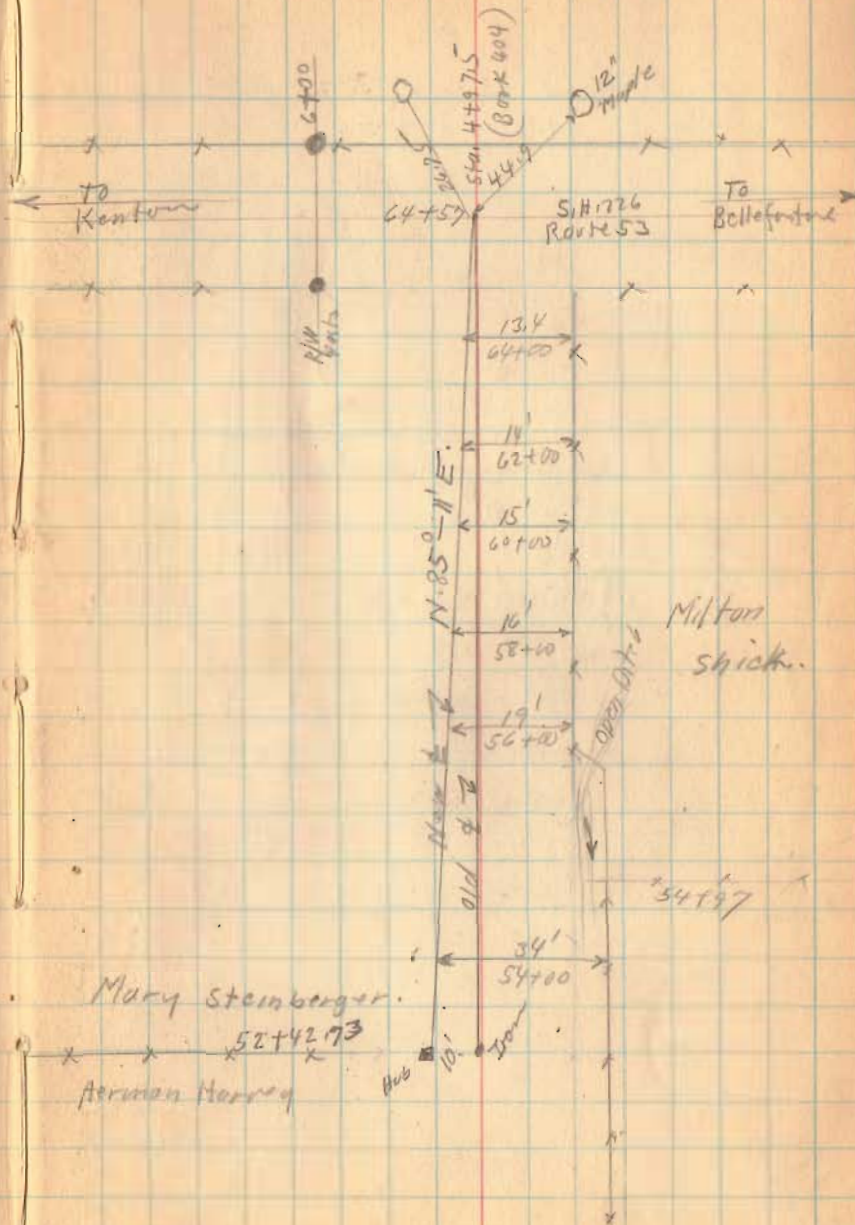 6+00
Sta. 4+97.5
(Book 404)
12"
Maple
44.9
To
Kenton
64+57
S.H. 226
Route 53
To
Bellefontaine
R/W
13.4
64+00
14'
62+00
N.85°-11'E.
15'
60+00
16'
58+00
Milton
Shick.
Open Ditch
19'
56+00
New ℄
Old ℄
54+97
34'
54+00
Mary Steinberger.
52+42.73
Hub
10.'
Iron
Herman Harvey